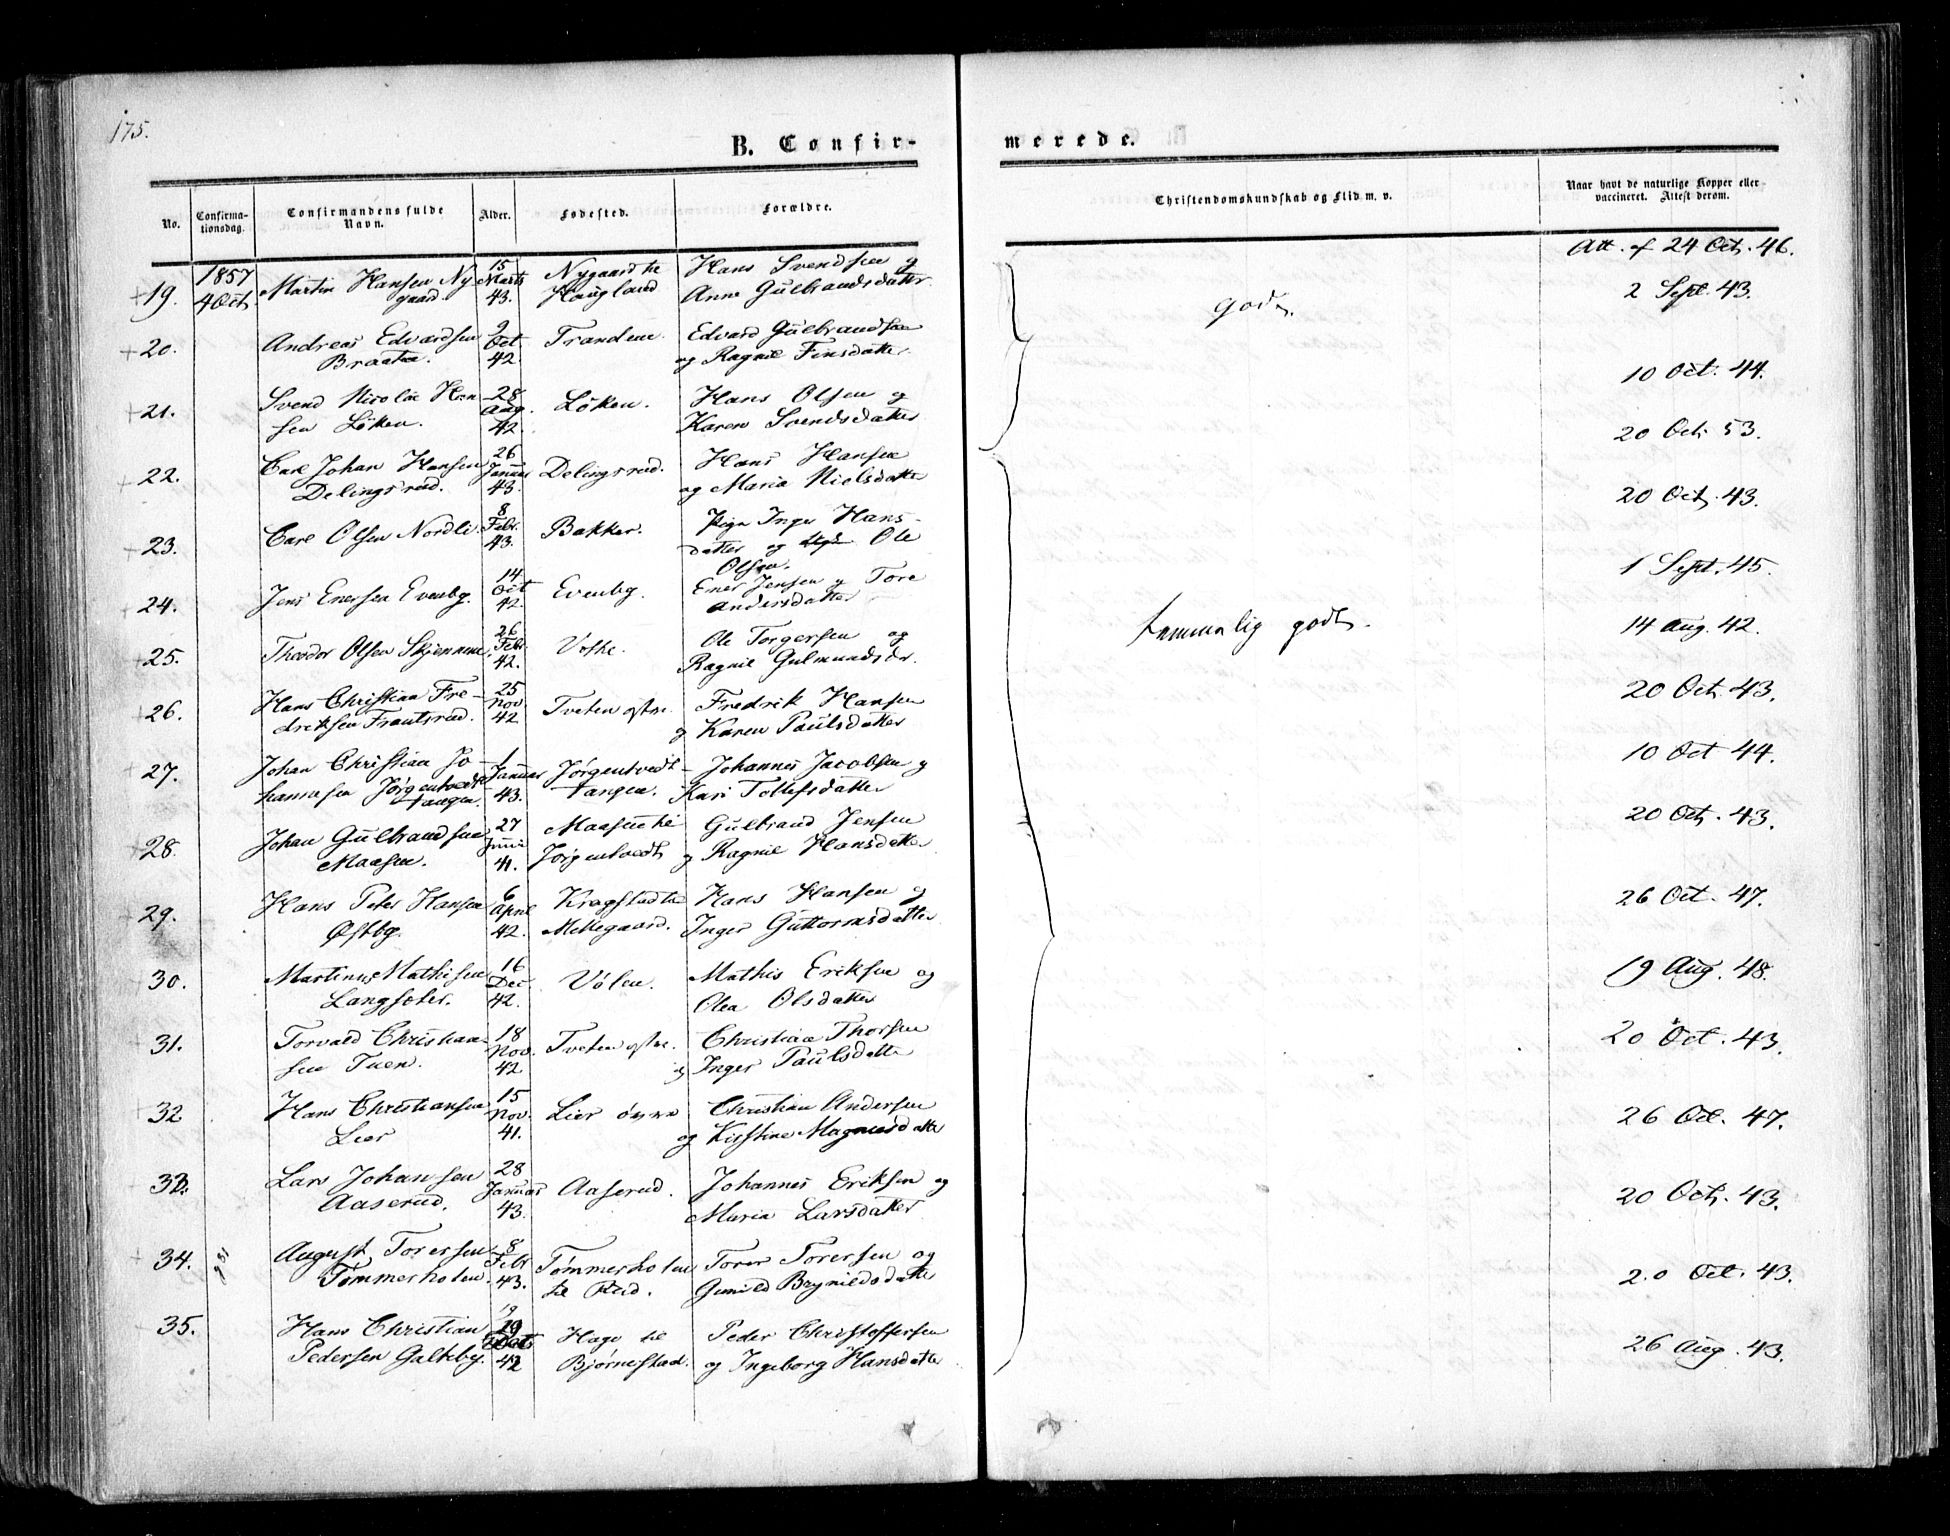 175.
B. Confir-
merede.
No.
Confirma-
tionsdag.
Confirmandens fulde
Navn.
Alder.
Fødested.
Forældre.
Christendomskundskab og Flid m. v.
Naar havt de naturlige Kopper eller
vaccineret. Attest derom.
19. 1857 4 Oct. Martin Hansen Ny-
gaard 15 Marts 43. Nygaard
Haugland Hans Svendsen og
Anne Gulbrandsdatter godt. Att. af 24 Oct. 46.
20. Andreas Edvardsen
Braaten. 9 Oct 42. Tranden Edvard Gulbrandsen
og Ragnil Finsdatter 2 Sept. 43.
21. Svend Nicolai Han
sen Löken. 28 Aug. 42. Löken. Hans Olsen og
Karen Svendsdatter 10 Oct. 44.
22. Carl Johan Hansen
Delingsrud. 26 Januar 43. Delingsrud. Hans Hansen
og Maria Nielsdatter 20 Oct. 53.
23. Carl Olsen Nordli. 8 Febr. 43. Bakker. Pige Inger Hans-
datter og Ole
Olsen. 20 Oct. 43.
24. Jens Enersen Evenbg. 14 Oct 42. Evenbg. Ener Jensen og Tore
Andersdatter 1 Sept. 45.
25. Theodor Olsen Skjennne. 26 Febr 42. Ole Torgersen og
Ragnil Gulmundsdr. temmelig godt. 14 Aug. 42.
26. Hans Christian Fre-
driksen Frantsrud. 25 Nov. 42 Tveten østre. Fredrik Hansen
og Karen Paulsdatter 20 Oct. 43.
27. Johan Christian Jo-
hannesen Jørgentvedt
tangen. 1 Januar 43. Jørgentvedt-
tangen. Johannes Jacobsen og
Kari Tollefsdatter 10 Oct 44.
28. Johan Gulbrandsen
Maasen. 27 Juni 41. Jørgentvedt Gulbrand Jensen
og Ragnil Hansdatter 20 Oct. 43.
29. Hans Peter Hansen
Østbg. 6 April 42. Kragstad
Mellegaard. Hans Hansen og
Inger Guttormsdatter 26 Oct. 47.
30. Martinus Mathisen
Langseter. 16 Dec 42. Vølen. Mathis Eriksen og
Olea Olsdatter 19 Aug. 48.
31. Torvald Christian-
sen Tuen. 18 Nov. 42 Tveten østre. Christian Thorsen
og Inger Paulsdatter 20 Oct. 43.
32 Hans Christiansen
Lier 15 Nov. 41. Lier øvre Christian Andersen
og Kirstine Magnusdatter 26 Oct. 47.
33. Lars Johansen
Aaserud. 28 Januar 43. Aaserud. Johannes Eriksen og
Maria Larsdatter 20 Oct. 43.
34. August Torersen
Tømmerholen. 8 Febr 43. Tømmerholen
til Rud. Torer Torersen og
Gunild Brynildsdatter 20 Oct. 43.
35. Hans Christian
Pedersen Galteby. 19 Oct 42 Hage til
Bjørnestad. Peder Christoffersen
og Ingeborg Hansdatter 26 Aug. 43.